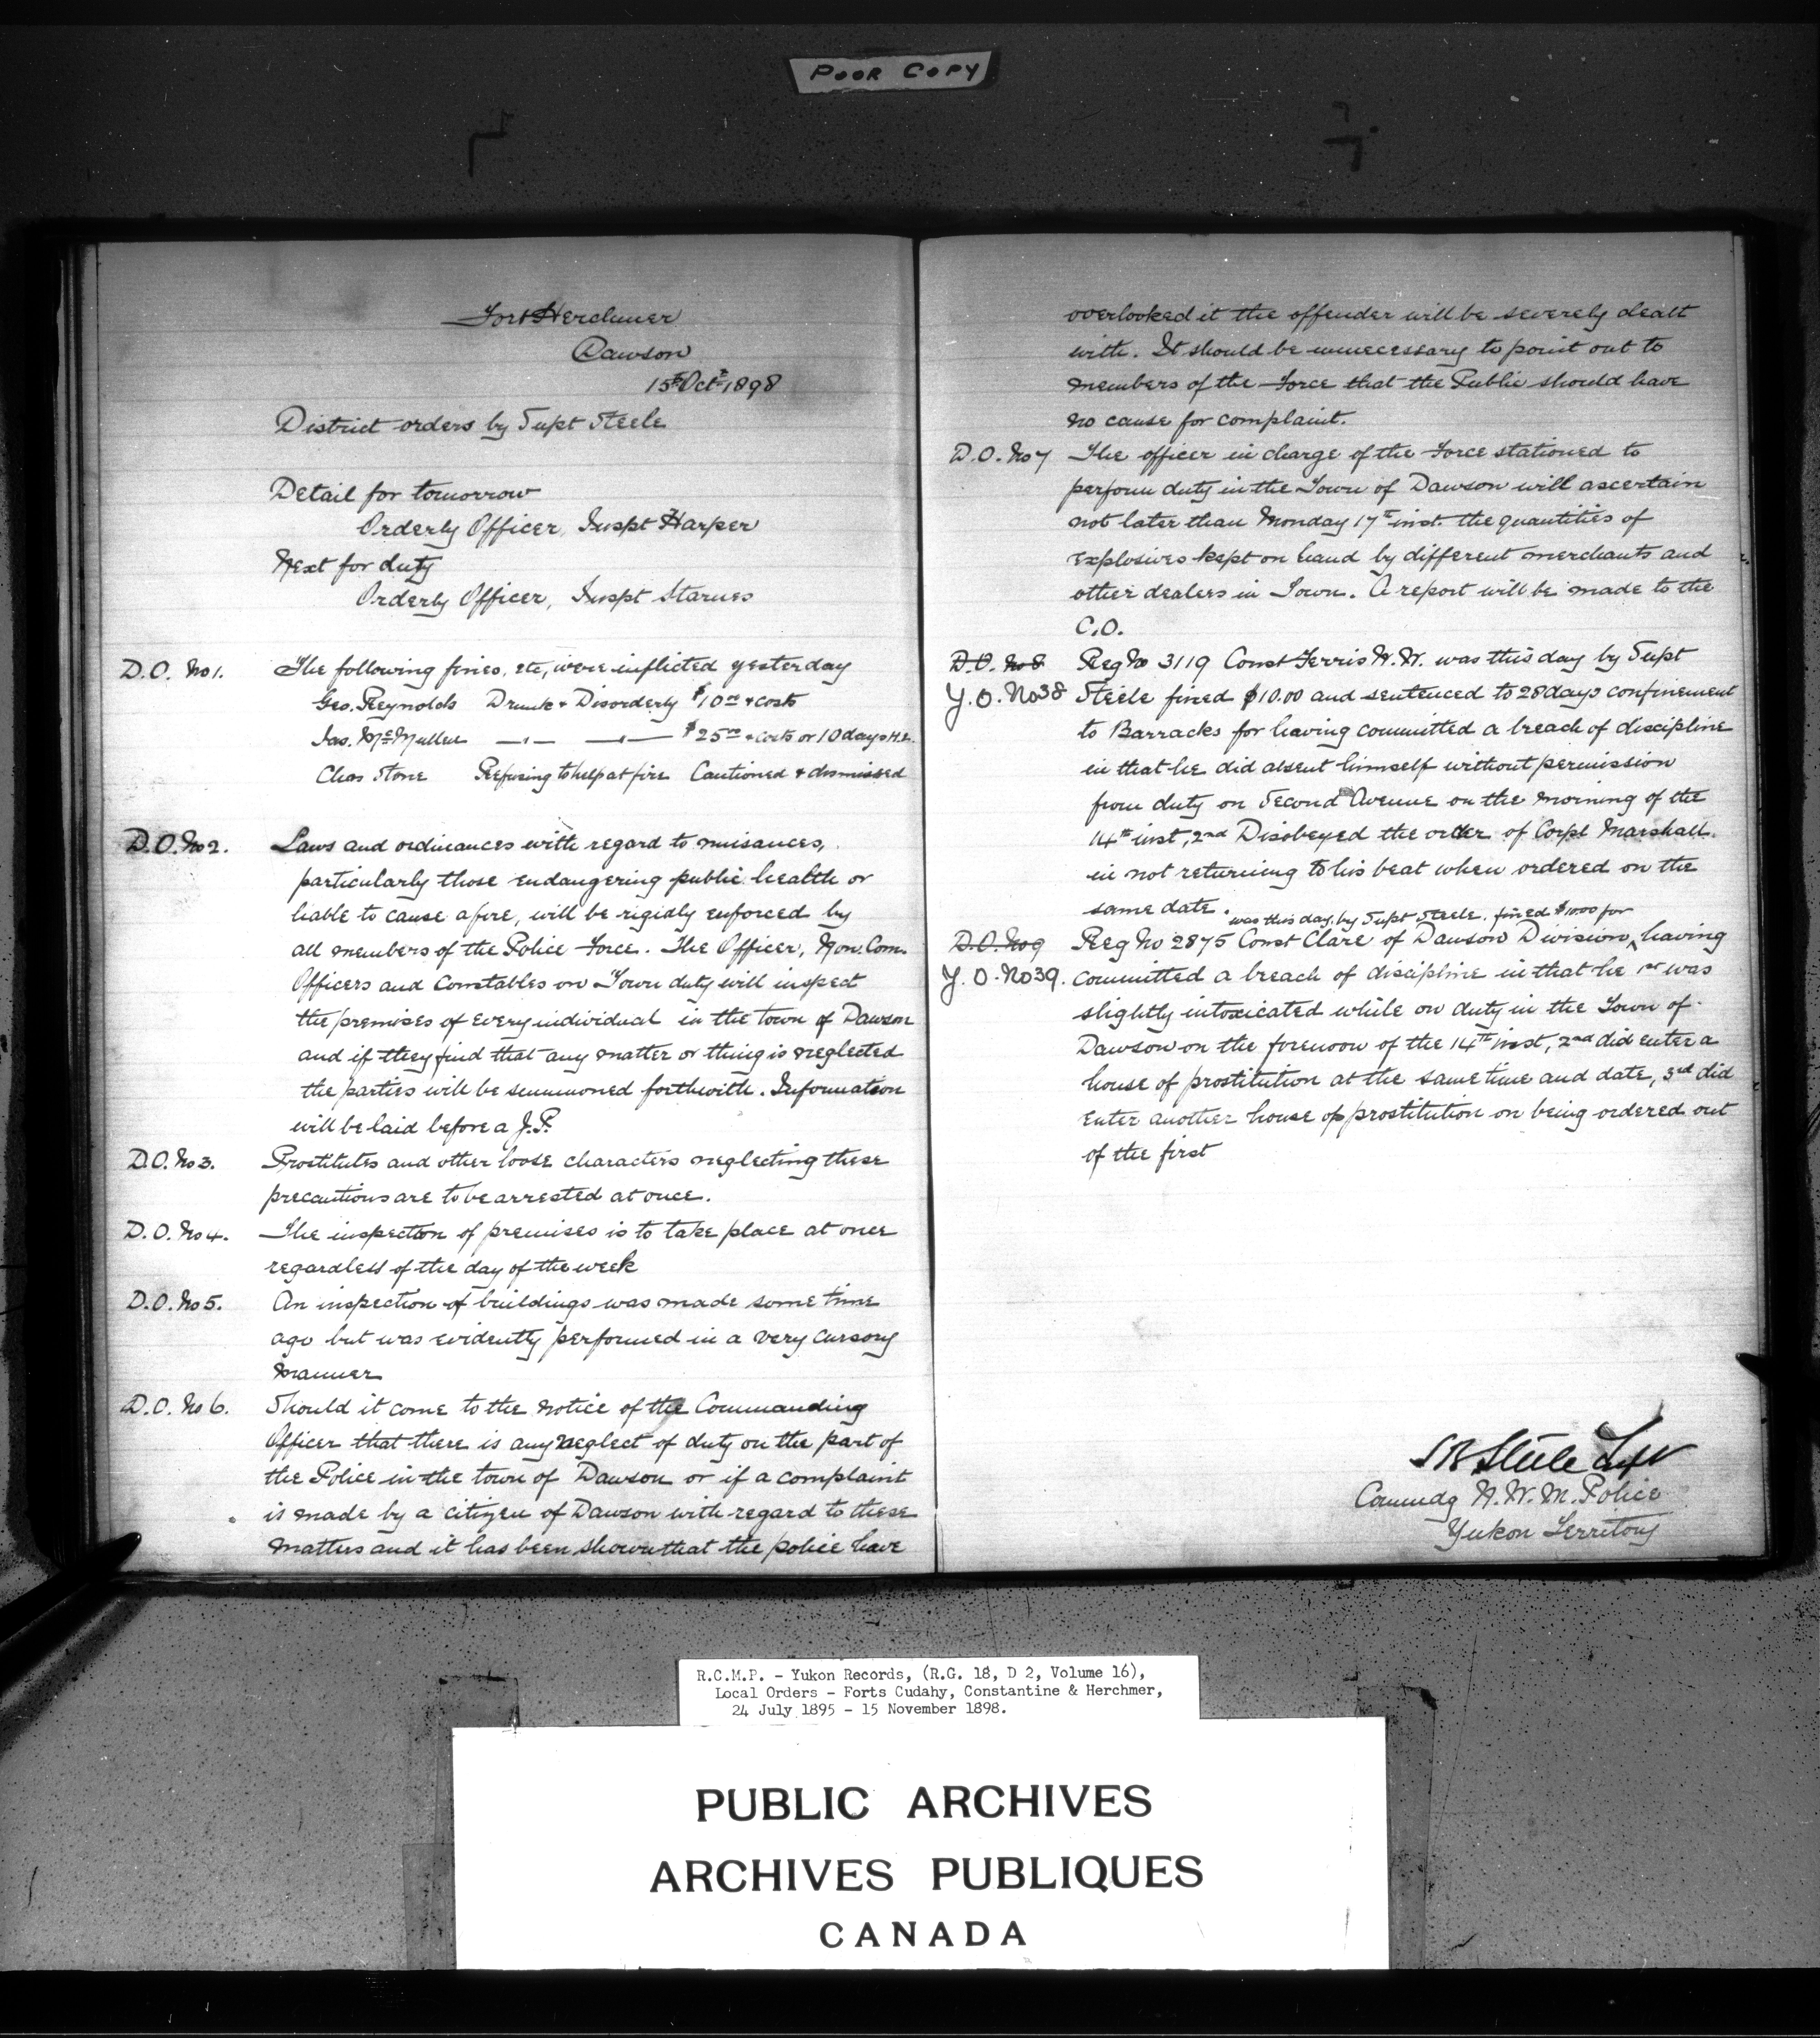 POOR COPY
Fort Herchmer
Dawson
15th Oct 1898
District orders by Supt Steele
Detail for tomorrow
Orderly Officer, Inspt Harper
Next for duty
Orderly Officer, Inspt Starnes
D.O. No 1. The following fines, etc, were inflicted yesterday
Geo. Reynolds Drunk & Disorderly $10 00 & costs
Jas. McMullen —"— —"— $25 00 & costs or 10 days H.L.
Chas Stone Refusing to help at fire Cautioned & dismissed
D.O. No 2. Laws and ordinances with regard to nuisances,
particularly those endangering public health or
liable to cause a fire, will be rigidly enforced by
all members of the Police Force. The Officer, Non. Com.
Officers and Constables on Town duty will inspect
the premises of every individual in the town of Dawson
and if they find that any matter or thing is neglected
the parties will be summoned forthwith. Information
will be laid before a J.P.
D.O. No 3. Prostitutes and other loose characters neglecting these
precautions are to be arrested at once.
D.O. No 4. The inspection of premises is to take place at once
regardless of the day of the week
D.O. No 5. An inspection of buildings was made some time
ago but was evidently performed in a very cursory
manner
D.O. No 6. Should it come to the notice of the Commanding
Officer that there is any neglect of duty on the part of
the Police in the town of Dawson or if a complaint
is made by a citizen of Dawson with regard to these
matters and it has been shown that the police have
overlooked it the offender will be severely dealt
with. It should be unnecessary to point out to
members of the Force that the Public should have
no cause for complaint.
D.O. No 7 The officer in charge of the Force stationed to
perform duty in the Town of Dawson will ascertain
not later than Monday 17th inst. the quantities of
explosives kept on hand by different merchants and
other dealers in Town. A report will be made to the
C.O.
D.O. No 8 Reg No 3119 Const Ferris W.W. was this day by Supt
Y.O. No 38 Steele fined $10.00 and sentenced to 28 days confinement
to Barracks for having committed a breach of discipline
in that he did absent himself without permission
from duty on Second Avenue on the morning of the
14th inst, 2nd Disobeyed the order of Corpl Marshall.
in not returning to his beat when ordered on the
same date.
was this day, by Supt Steele, fined $10.00 for
D.O. No 9 Reg No 2875 Const Clare of Dawson Division, having
Y.O. No 39. committed a breach of discipline in that he 1st was
slightly intoxicated while on duty in the Town of
Dawson on the forenoon of the 14th inst, 2nd did enter a
house of prostitution at the same time and date, 3rd did
enter another house of prostitution on being ordered out
of the first
S B Steele Supt
Commdg N.W.M. Police
Yukon Territory
R.C.M.P. - Yukon Records, (R.G. 18, D 2, Volume 16),
Local Orders - Forts Cudahy, Constantine & Herchmer,
24 July 1895 - 15 November 1898.
PUBLIC ARCHIVES
ARCHIVES PUBLIQUES
CANADA